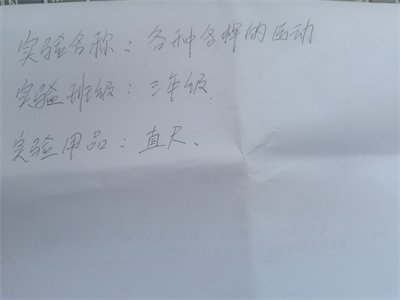 实验名称：各种各样的运动
实验班级：三年级.
实验用品：直尺、